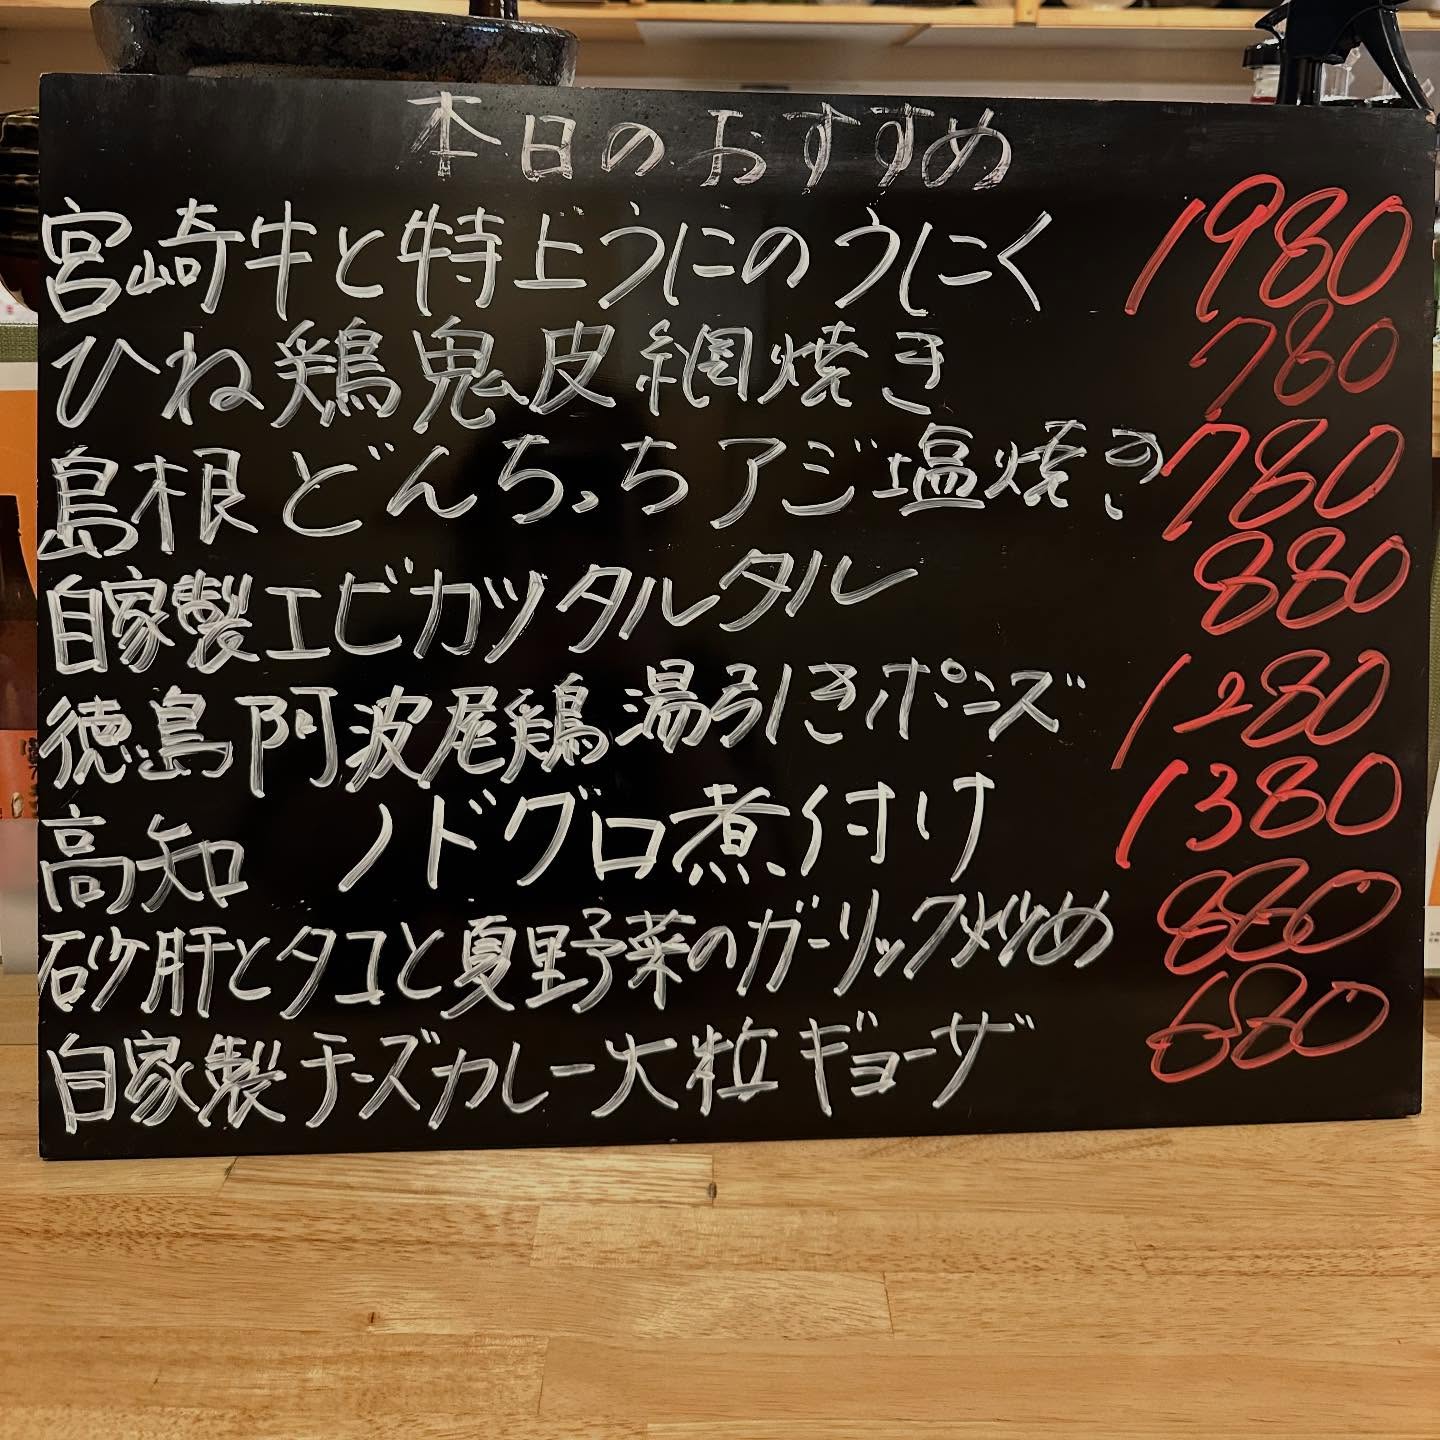 本日のおすすめ
宮崎牛と特上うにのうにく 1980
ひね鶏鬼皮網焼き 780
島根どんちっちアジ塩焼き 780
自家製エビカツタルタル 880
徳島阿波尾鶏湯引きポンズ 1280
高知 ノドグロ煮付け 1380
砂肝とタコと夏野菜のガーリック炒め 880
自家製チーズカレー大粒ギョーザ 680